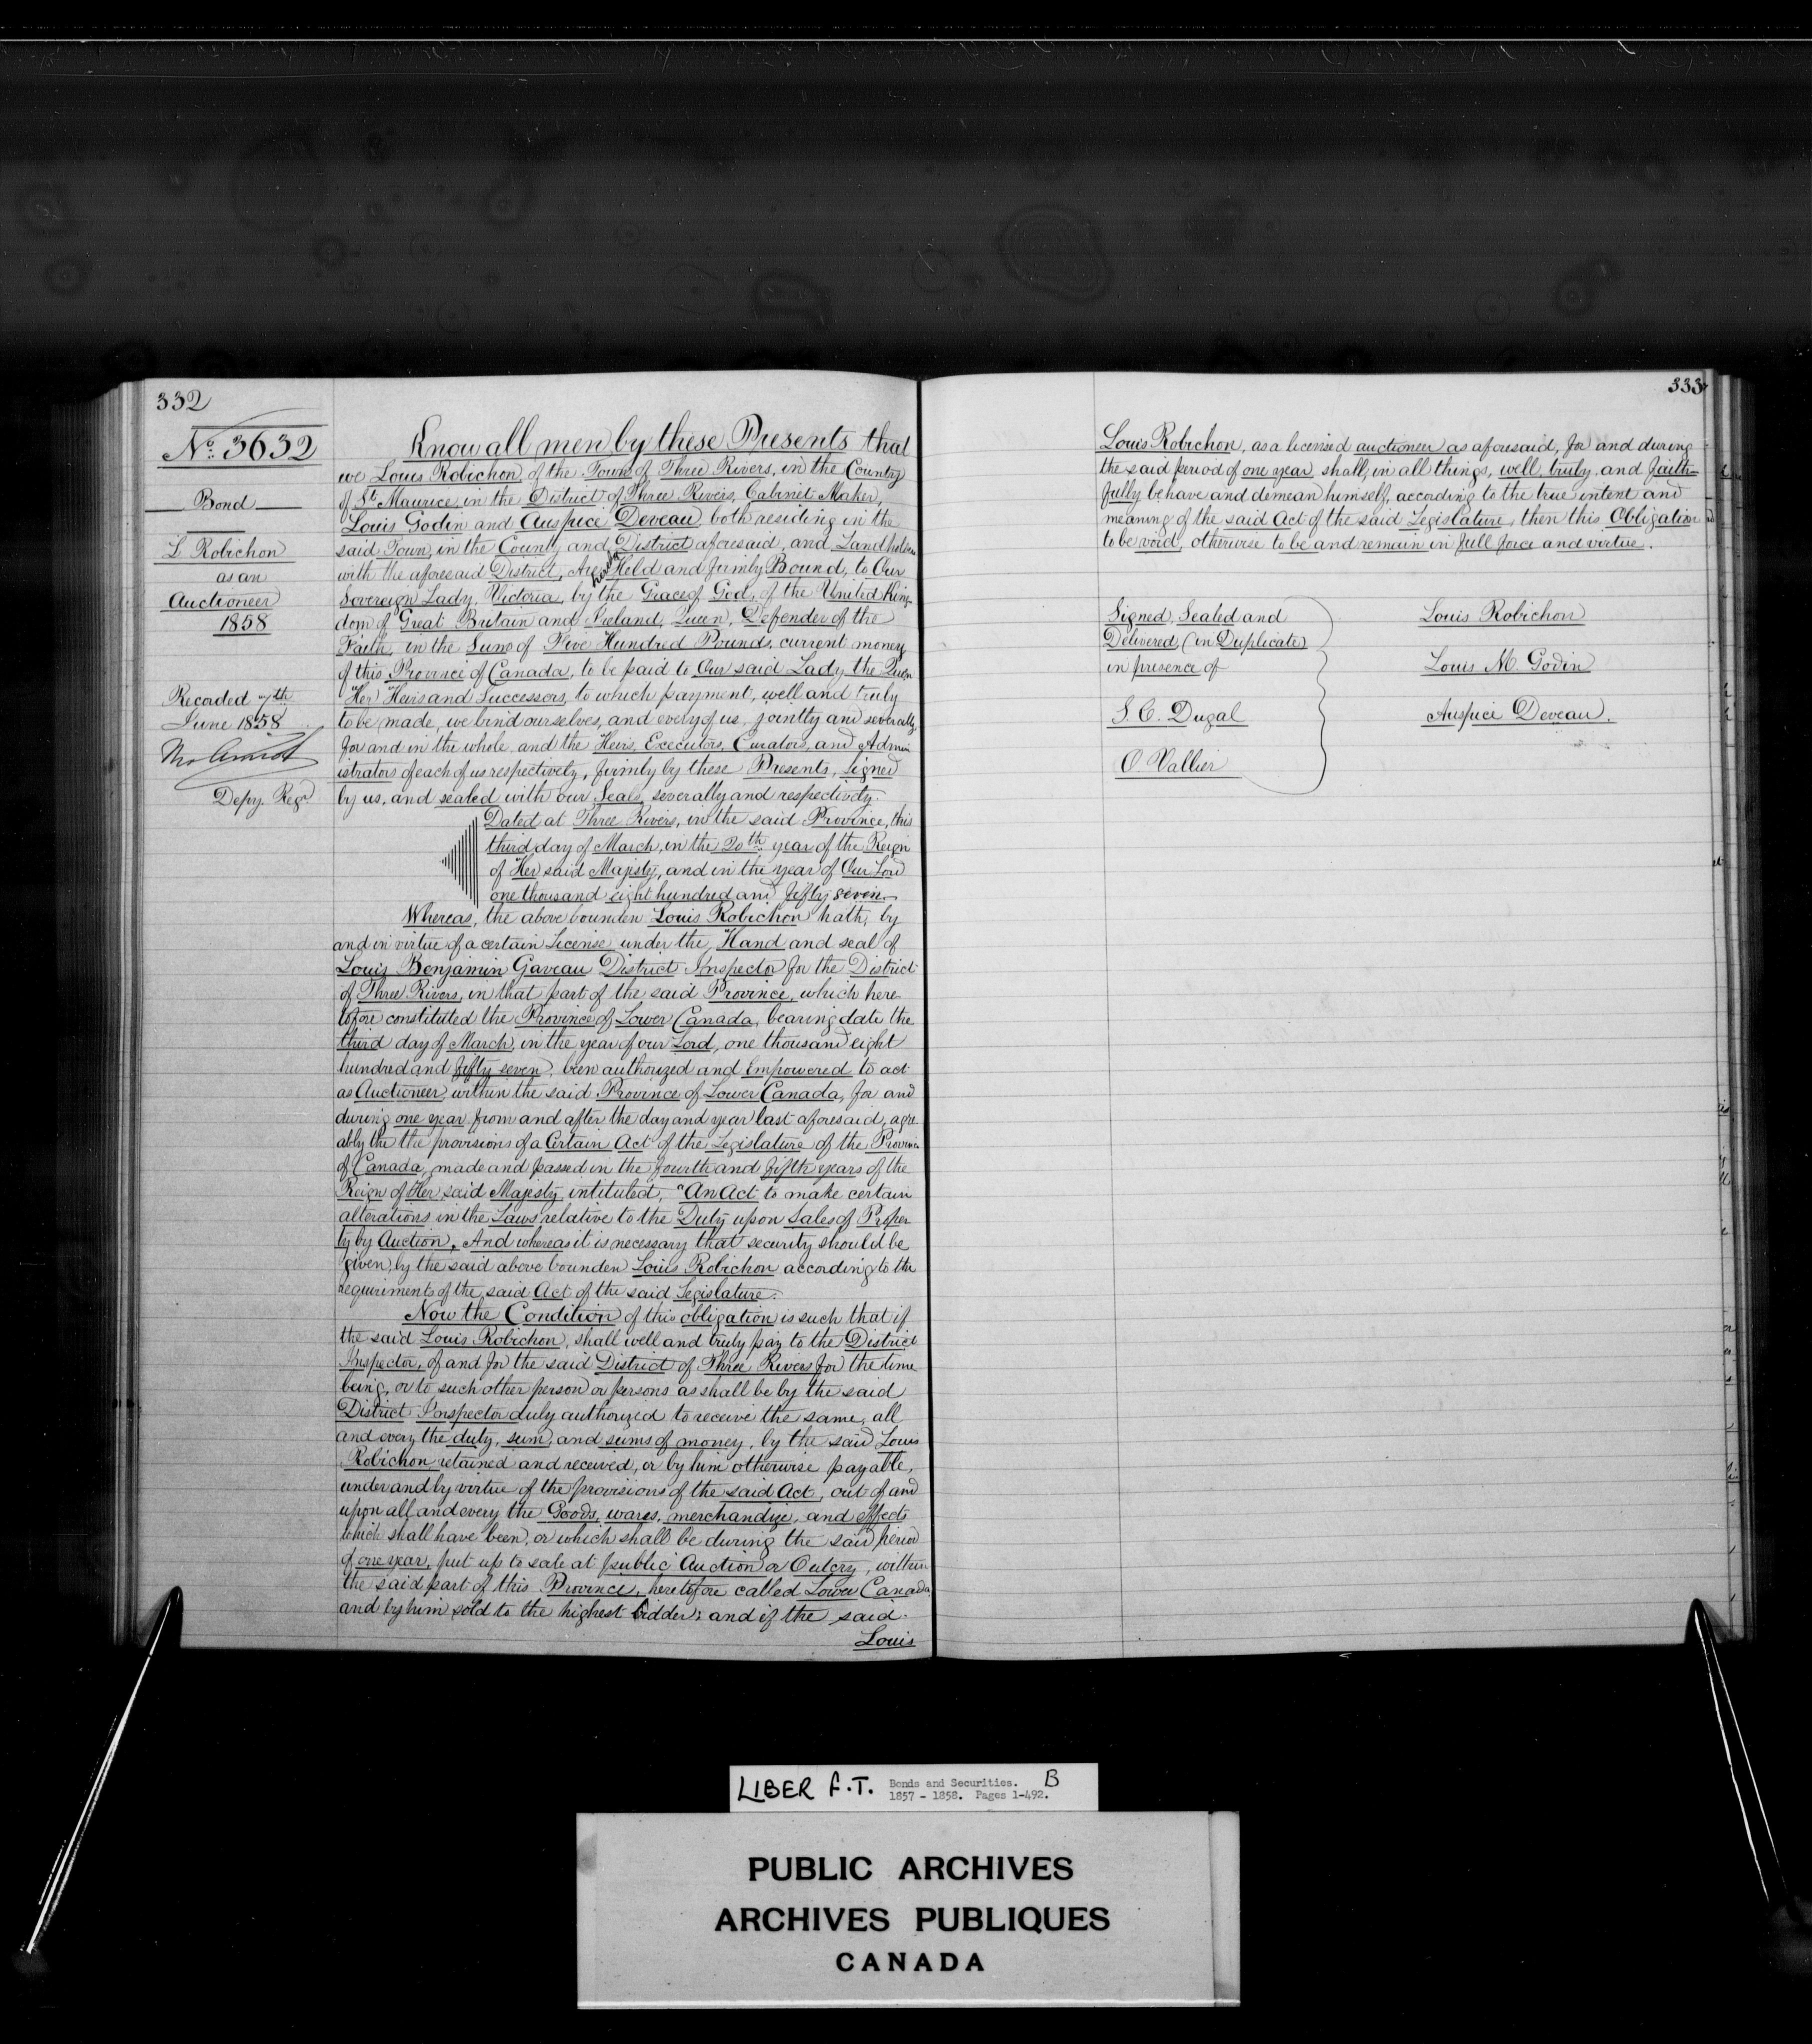 332
No. 3632
Bond
L Robichon
as an
Auctioneer
1858
Recorded 7th
June 1858
Depy. Regr
Know all men by these Presents that
we Louis Robichon, of the Town of Three Rivers, in the County
of St Maurice, in the District of Three Rivers, Cabinet Maker,
Louis Godin and Auspice Deveau, both residing in the
said Town, in the County and District aforesaid, and Landholders
with the aforesaid District, Are hereby Held and firmly Bound, to Our
Sovereign Lady, Victoria, by the Grace of God, of the United King-
dom of Great Britain and Ireland, Queen, Defender of the
Faith, in the Sum of Five Hundred Pounds, current money
of this Province of Canada, to be paid to Our said Lady the Queen
Her Heirs and Successors, to which payment, well and truly
to be made, we bind ourselves, and every of us, jointly and severally,
for and in the whole, and the Heirs, Executors, Curators, and Admin
istrators of each of us respectively, firmly by these Presents, Signed
by us, and sealed with our Seals, severally and respectively.
Dated at Three Rivers, in the said Province, this
third day of March, in the 20th year of the Reign
of Her said Majesty, and in the year of Our Lord
one thousand eight hundred and fifty seven.
Whereas, the above bounden Louis Robichon hath, by
and in virtue of a certain License under the Hand and seal of
Louis Benjamin Gaveau District Inspector for the District
of Three Rivers, in that part of the said Province, which here
tofore constituted the Province of Lower Canada, bearing date the
third day of March, in the year of our Lord, one thousand eight
hundred and fifty seven, been authorized and Empowered to act
as Auctioneer, within the said Province of Lower Canada, for and
during one year from and after the day and year last aforesaid, agre
ably the the provisions of a Certain Act of the Legislature of the Province
of Canada, made and passed in the fourth and fifth years of the
Reign of Her said Majesty, intituled, "An Act to make certain
alterations in the Laws relative to the Duty upon Sales of Proper
ty by Auction, And whereas it is necessary that security should be
given, by the said above bounden Louis Robichon according to the
requirements of the said Act of the said Legislature.
Now the Condition of this obligation is such that if
the said Louis Robichon, shall well and truly pay to the District
Inspector, of and for the said District of Three Rivers for the time
being, or to such other person or persons as shall be by the said
District Inspector duly authorized to receive the same, all
and every the duty, sum, and sums of money, by the said Louis
Robichon retained and received, or by him otherwise payable,
under and by virtue of the provisions of the said Act, out of and
upon all and every the Goods, wares, merchandize, and effects
which shall have been, or which shall be during the said period
of one year, put up to sale at public Auction or Outcry, within
the said part of this Province, heretofore called Lower Canada,
and by him sold to the highest bidder; and if the said
Louis
333
Louis Robichon, as a licensed auctioneer as aforesaid, for and during
the said period of one year, shall, in all things, well, truly, and faith-
fully behave and demean himself, according to the true intent and
meaning of the said Act of the said Legislature, then this Obligation
to be void, otherwise to be and remain in full force and virtue.
Signed, Sealed and
Delivered, (in Duplicate)
in presence of
S. C. Dugal
O. Vallier
Louis Robichon
Louis M. Godin
Auspice Deveau.
LIBER F.T. Bonds and Securities. B
1857 - 1858. Pages 1-492.
PUBLIC ARCHIVES
ARCHIVES PUBLIQUES
CANADA